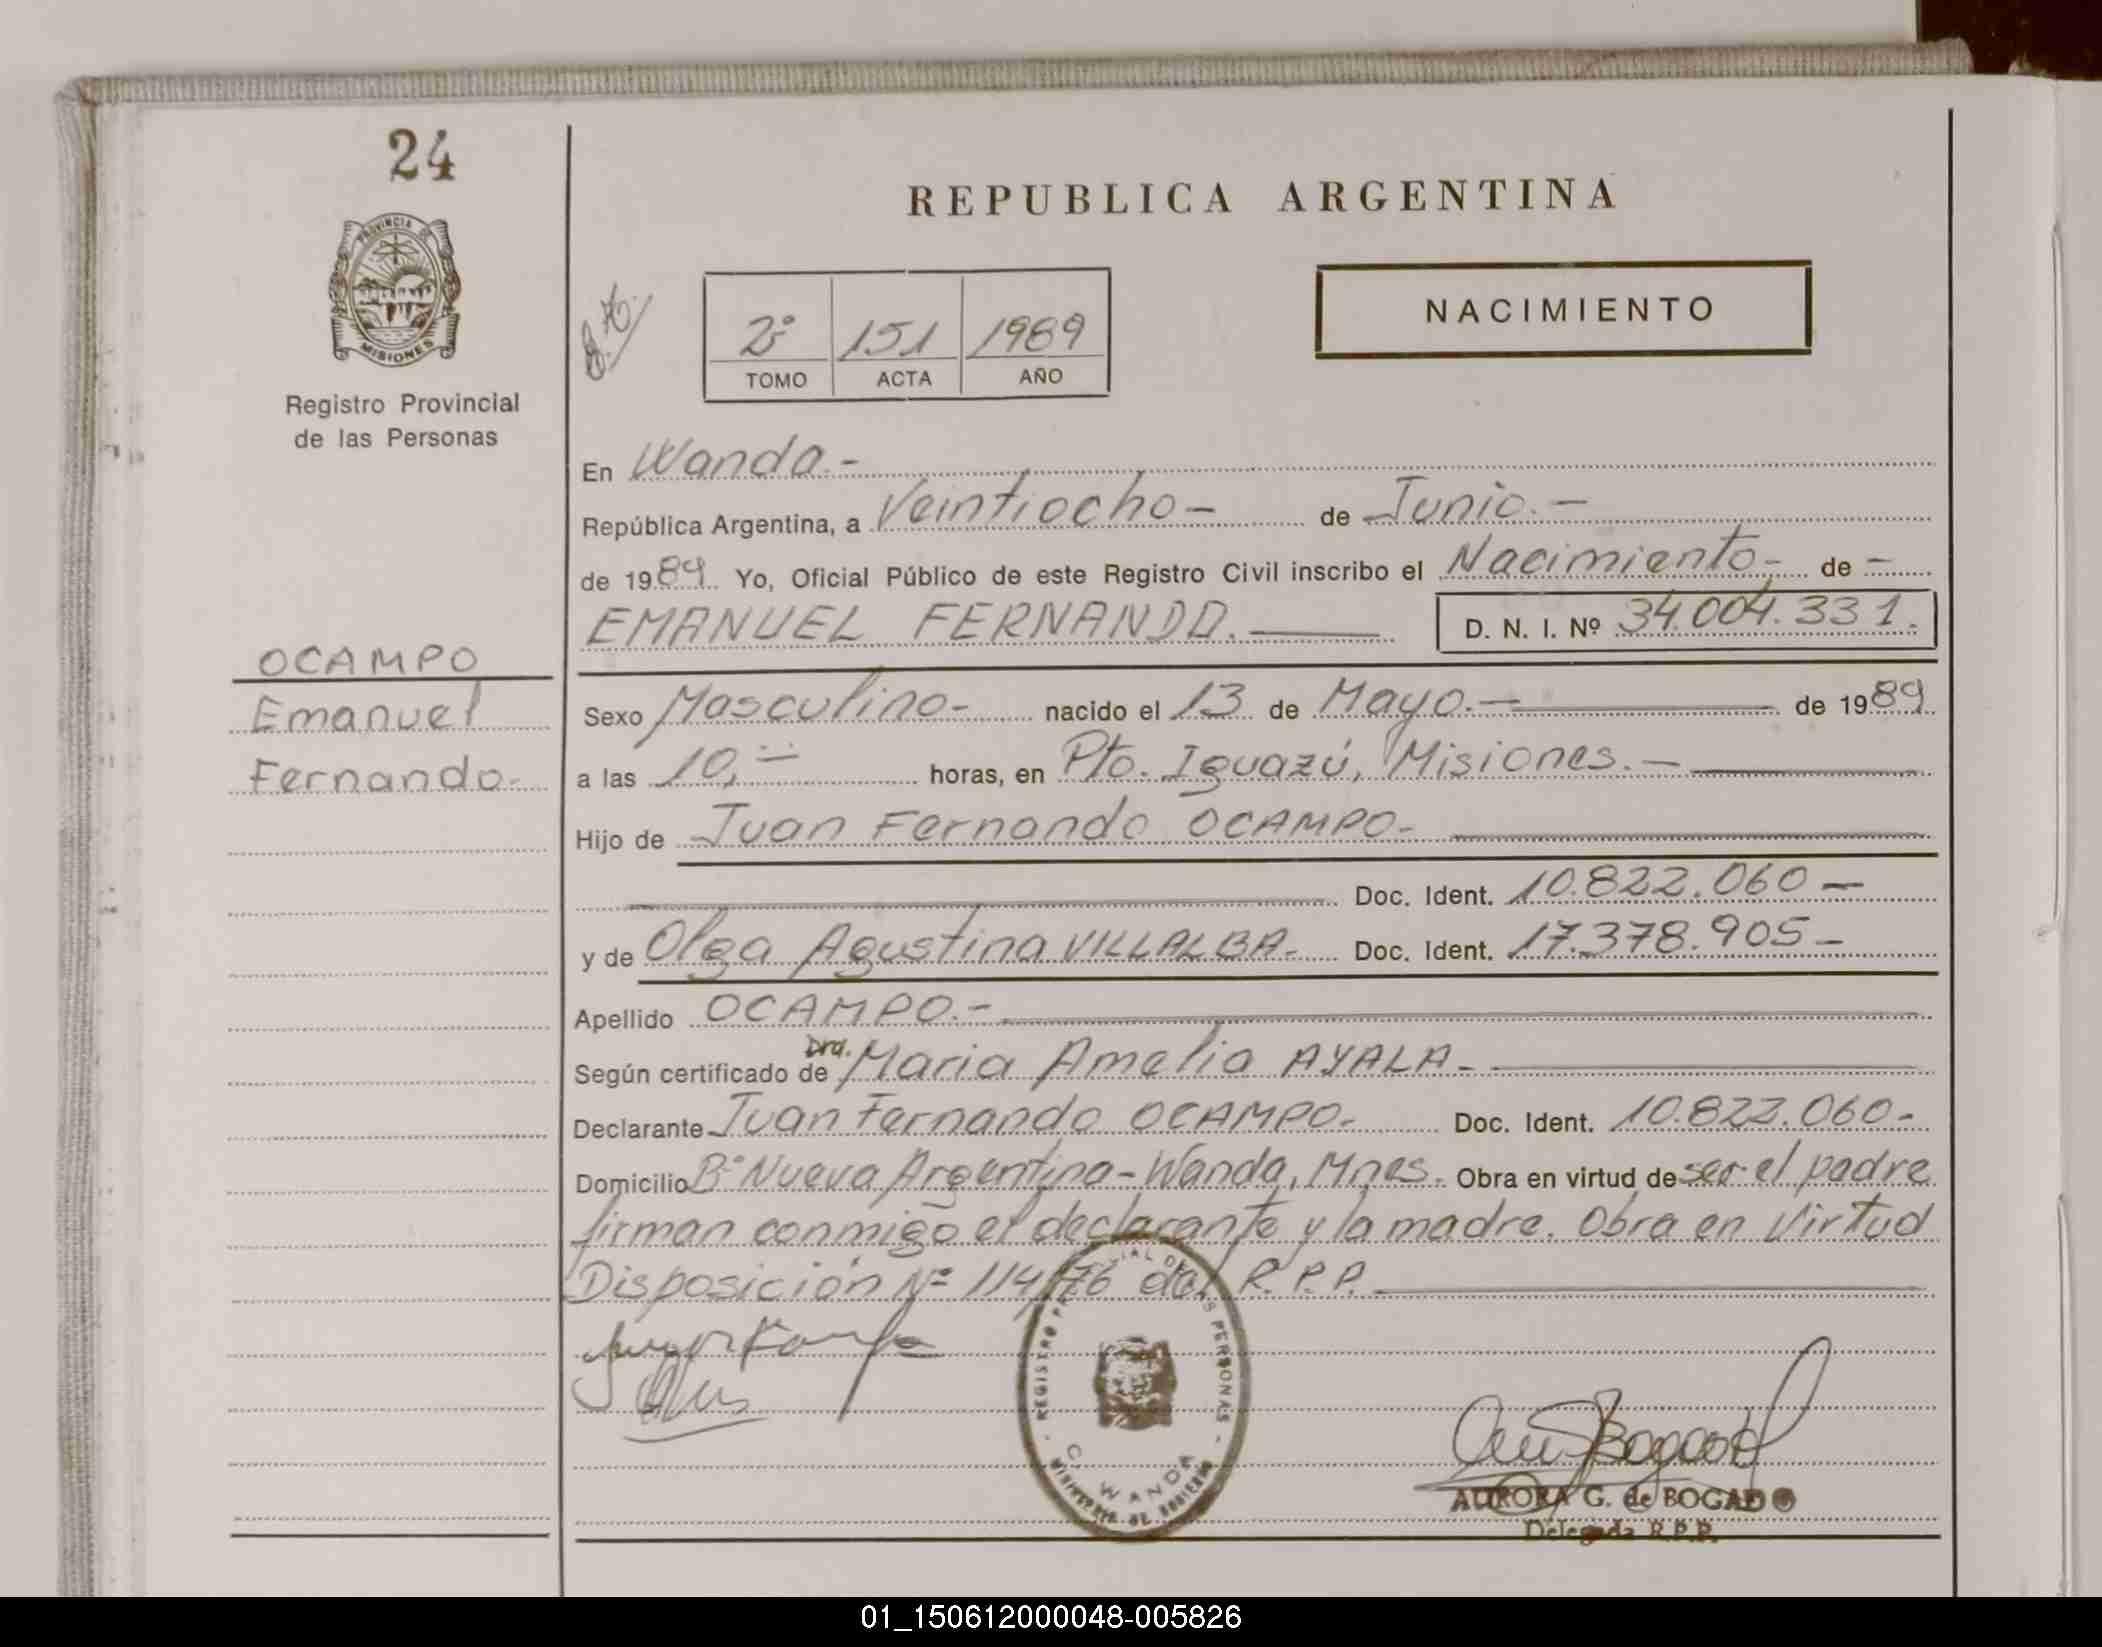 24
REPUBLICA ARGENTINA
PROVINCIA DE
MISIONES
Registro Provincial
de las Personas
2º 151 1989
TOMO ACTA AÑO
NACIMIENTO
En Wanda.-
República Argentina, a Veintiocho- de Junio.-
de 1989. Yo, Oficial Público de este Registro Civil inscribo el Nacimiento- de -
EMANUEL FERNANDO. D. N. I. Nº 34.004.331.
OCAMPO
Emanuel
Fernando-
Sexo Masculino- nacido el 13 de Mayo.- de 1989
a las 10,- horas, en Pto. Iguazú, Misiones.-
Hijo de Juan Fernando OCAMPO-
Doc. Ident. 10.822.060-
y de Olga Agustina VILLALBA- Doc. Ident. 17.378.905-
Apellido OCAMPO.-
Según certificado de Dra. Maria Amelia AYALA-
Declarante Juan Fernando OCAMPO- Doc. Ident. 10.822.060-
Domicilio Bº Nueva Argentina-Wanda, Mnes. Obra en virtud de ser el padre
firman conmigo el declarante y la madre. Obra en Virtud
Disposición Nº 114/76 del R.P.P.
REGISTRO PROVINCIAL DE LAS PERSONAS
WANDA
AURORA G. de BOGADO
Delegada R.P.P.
01_150612000048-005826